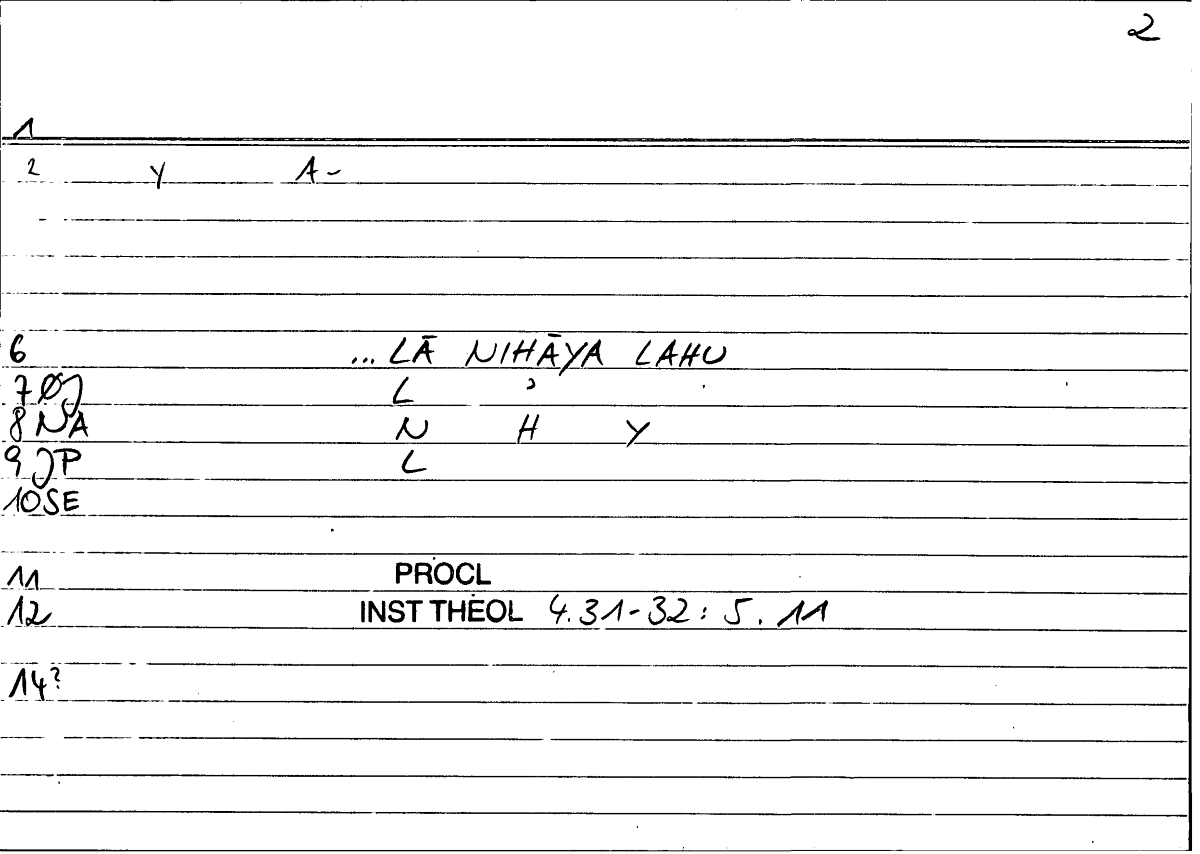 2
1
2 Y A-
6 ... LĀ NIHĀYA LAHU
7 ØJ L ʾ
8 NA N H Y
9 JP L
10 SE
11 PROCL
12 INST THEOL 4.31-32: 5.11
14?